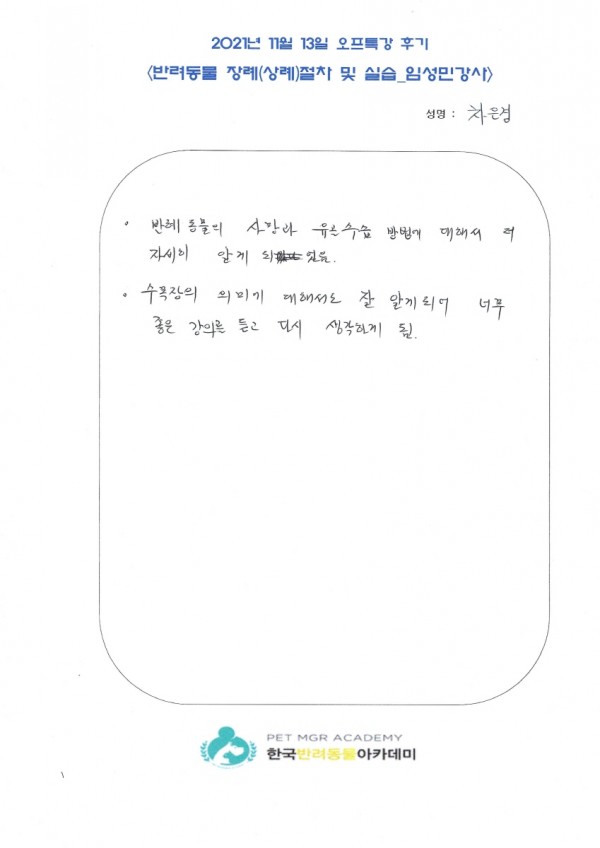 2021년 11월 13일 오프특강 후기
<반려동물 장례(상례)절차 및 실습_임성민강사>
성명 : 차은경
• 반례동물의 사망과 유골수습 방법에 대해서 더
자세히 알게 되었음.
• 수목장의 의미기 대해서도 잘 알게되어 너무
좋은 강의를 듣고 다시 생각하게 됨.
PET MGR ACADEMY
한국반려동물아카데미